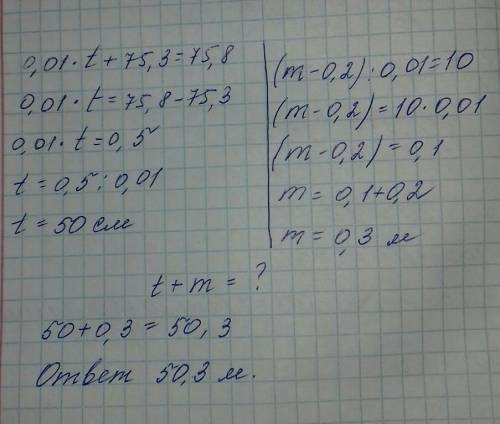 0,01·t+75,3=75,8
0,01·t=75,8-75,3
0,01·t=0,5
t=0,5:0,01
t=50 см
(m-0,2):0,01=10
(m-0,2)=10·0,01
(m-0,2)=0,1
m=0,1+0,2
m=0,3 м
t+m=?
50+0,3=50,3
Ответ 50,3 м.